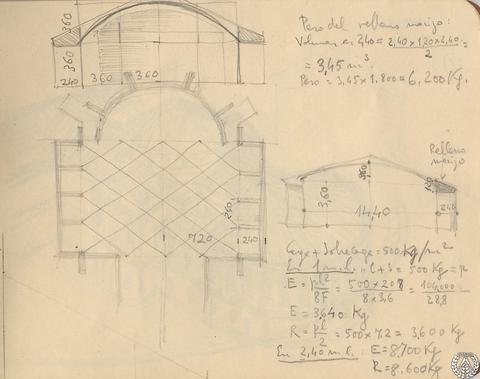 Peso del relleno macizo:
Volumen en 2,40 = 2,40 x 1,20 x 2,40 / 2 =
= 3,45 m³
Peso = 3,45 x 1.800 = 6,200 Kg.
360
360
240
360
360
Relleno
macizo
360
3,60
120
14,40
240
240
720
240
Carga + Sobrecarga = 500 Kg/m²
En 1 m.l. = C + S = 500 Kg = p
E = pl²/8F = 500 x 208 / 8 x 3,6 = 104,000 / 28,8
E = 3,640 Kg
R = pl/2 = 500 x 7,2 = 3,600 Kg
En 2,40 m.l.: E = 8,700 Kg
R = 8,600 Kg